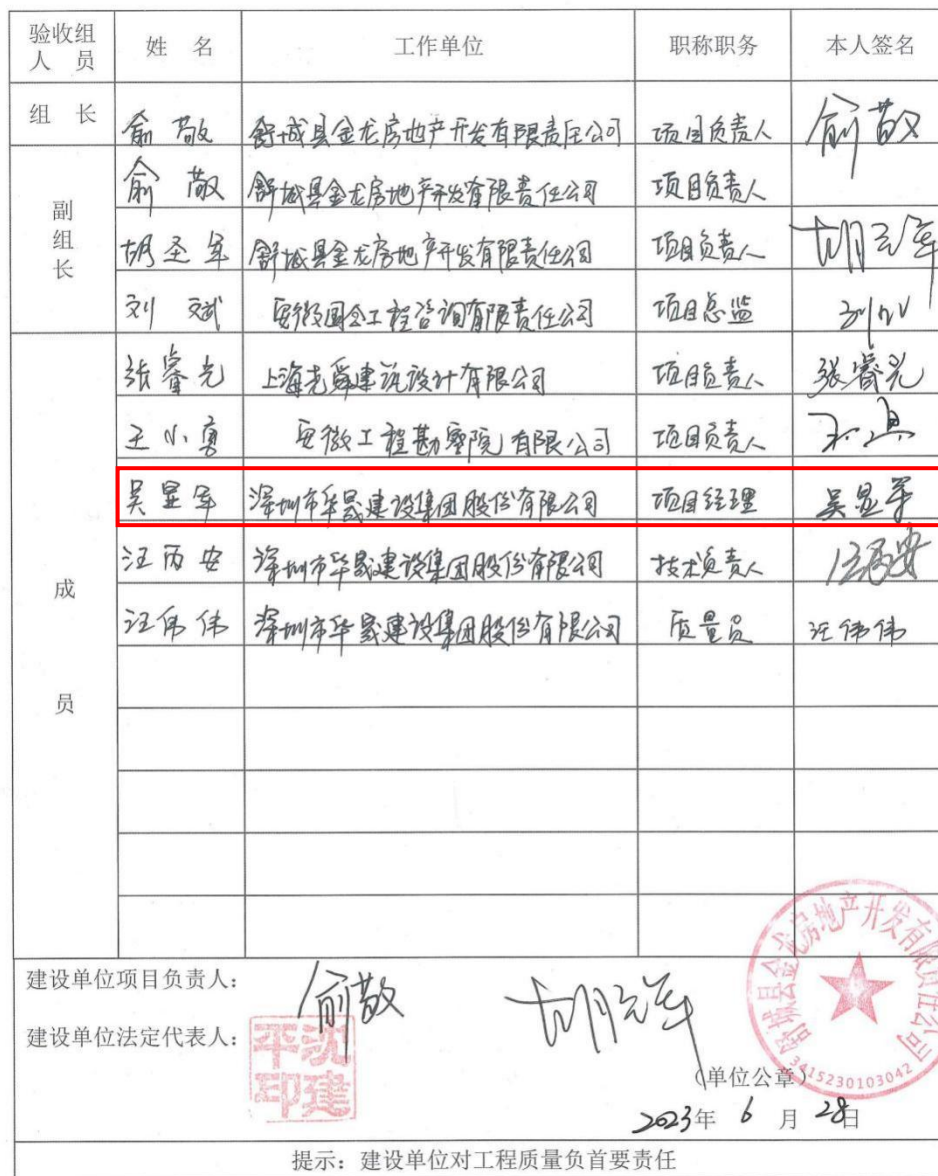 验收组人员 姓 名 工作单位 职称职务 本人签名
组 长 俞敬 舒城县金龙房地产开发有限责任公司 项目负责人 俞敬
副组长 俞敬 舒城县金龙房地产开发有限责任公司 项目负责人
胡圣军 舒城县金龙房地产开发有限责任公司 项目负责人
刘斌 安徽国合工程咨询有限责任公司 项目总监
成员 张睿光 上海尧舜建筑设计有限公司 项目负责人 张睿光
王小勇 安徽工程勘察院有限公司 项目负责人
吴显军 深圳市华晟建设集团股份有限公司 项目经理 吴显军
汪丙安 深圳市华晟建设集团股份有限公司 技术负责人 汪丙安
汪伟伟 深圳市华晟建设集团股份有限公司 质量员 汪伟伟
建设单位项目负责人: 俞敬
建设单位法定代表人:
沈建平印
舒城县金龙房地产开发有限责任公司
3415230103042
(单位公章)
2023年 6 月 28日
提示:建设单位对工程质量负首要责任